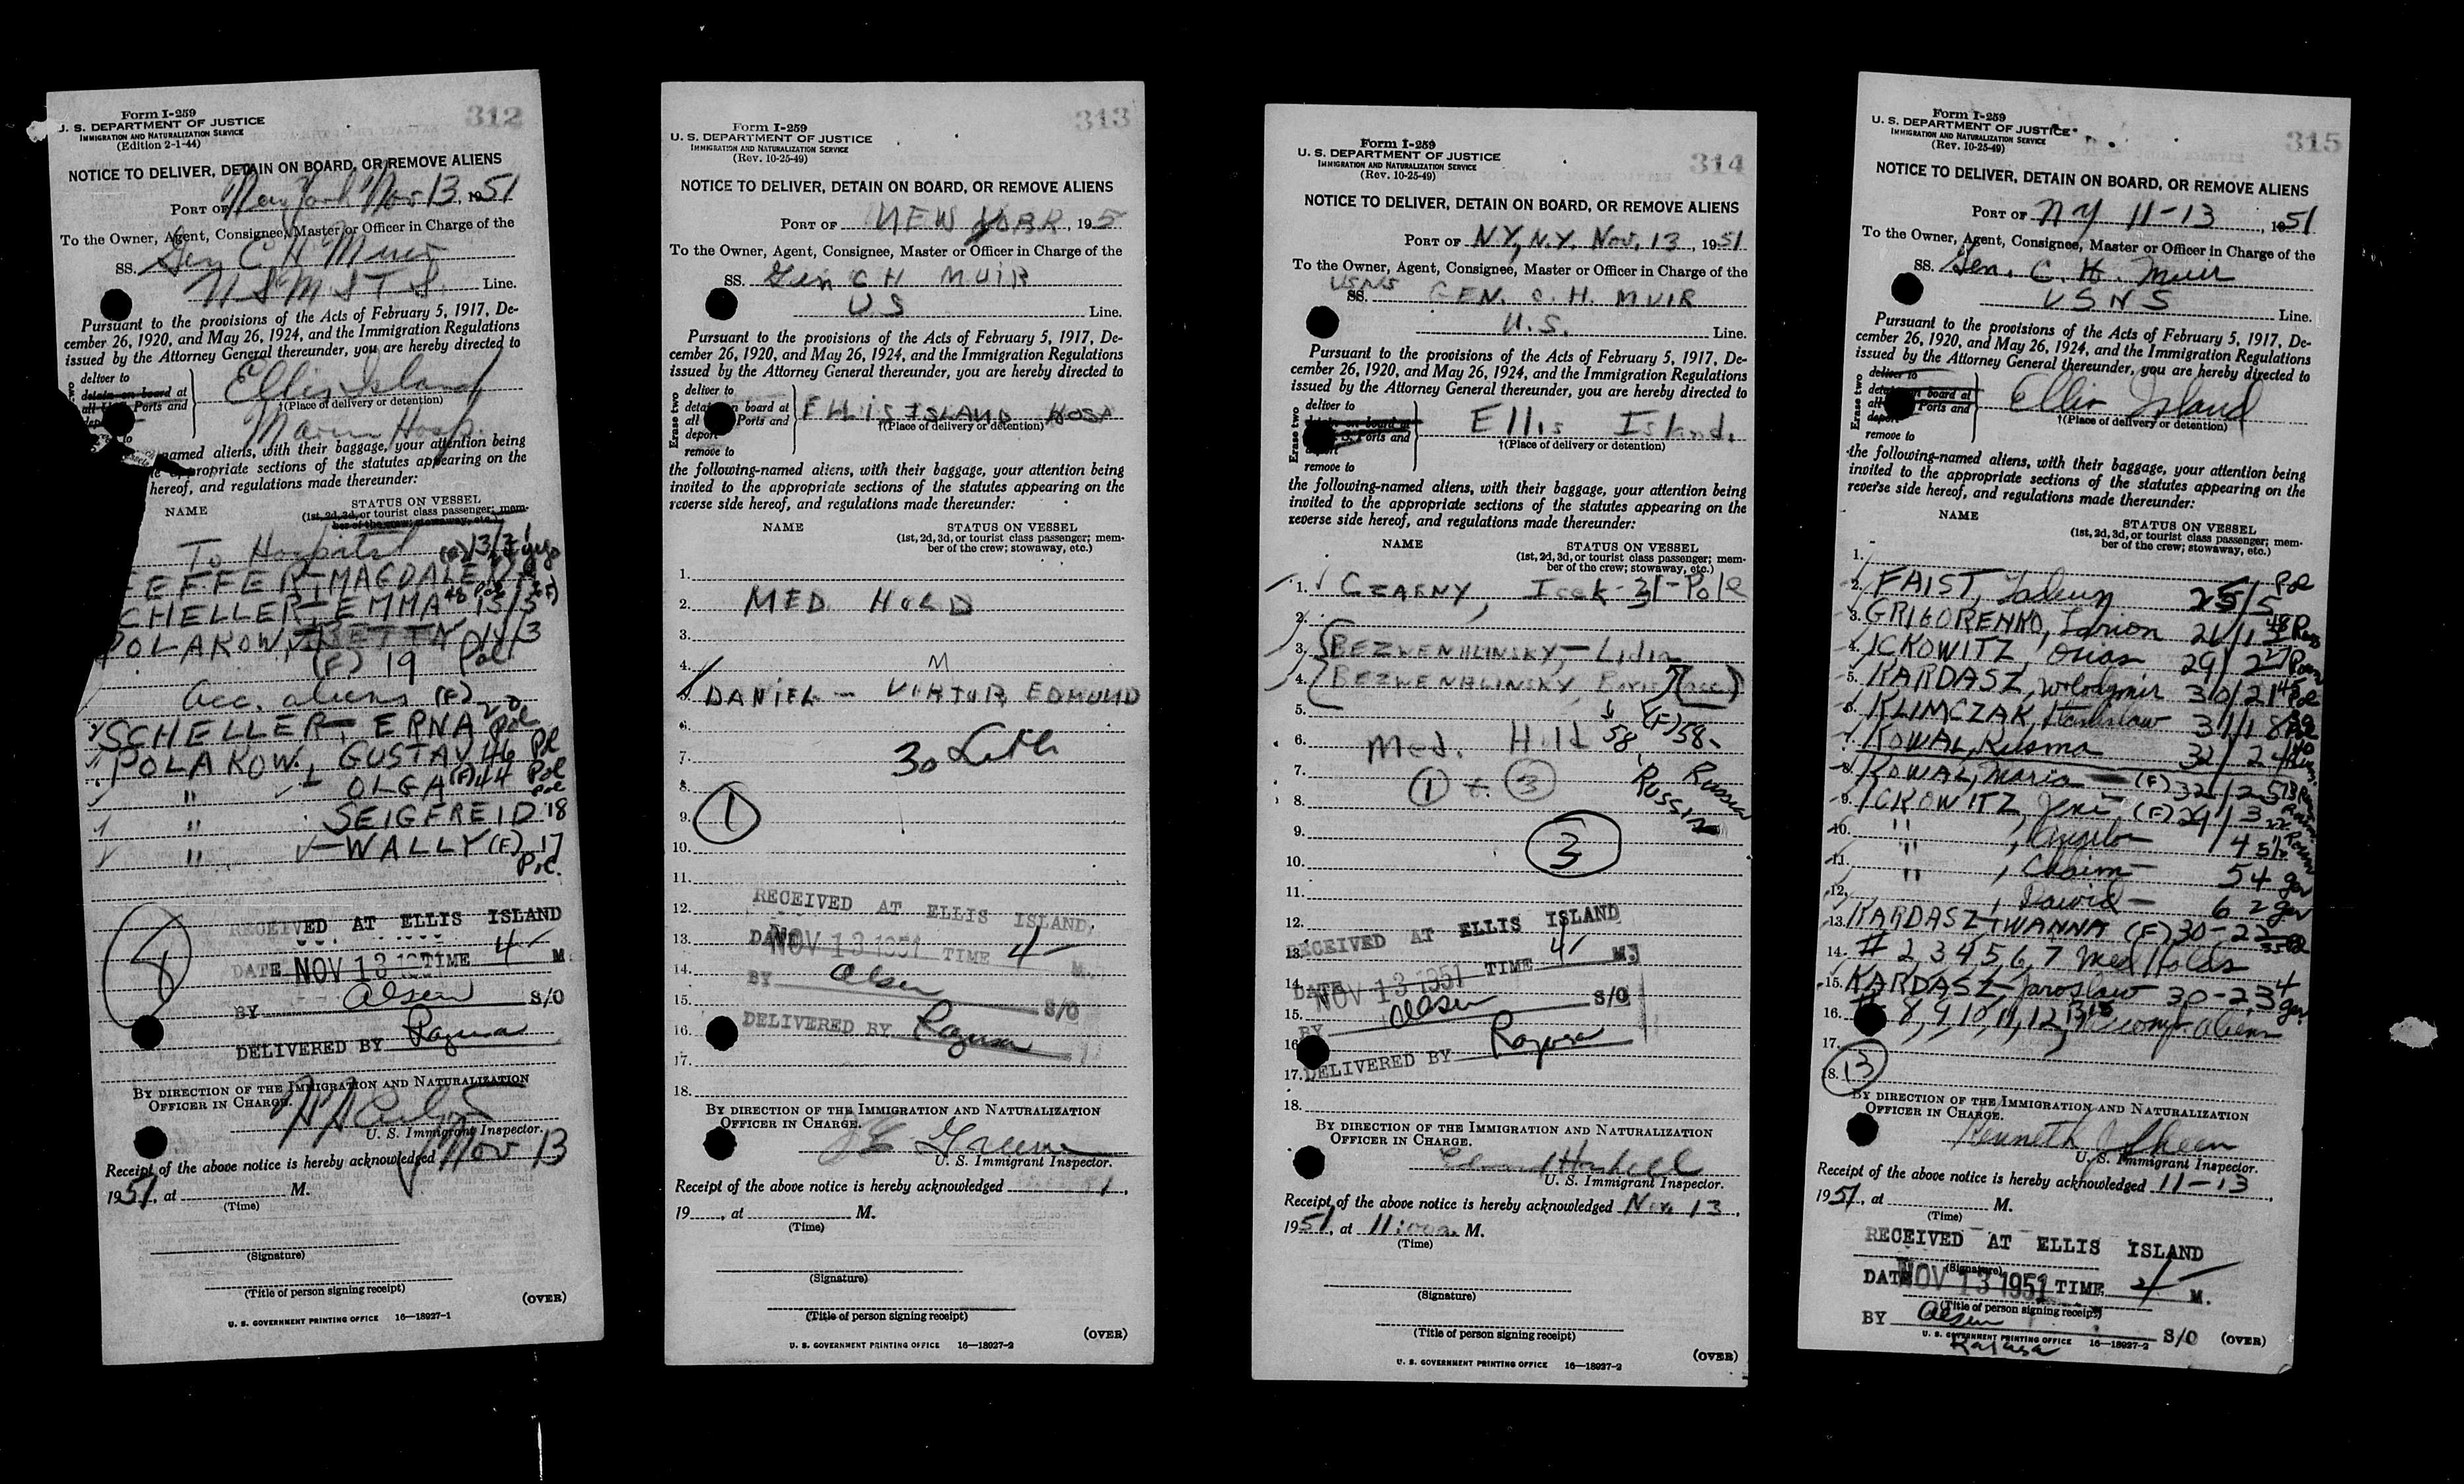 312
Form I-259
U. S. DEPARTMENT OF JUSTICE
IMMIGRATION AND NATURALIZATION SERVICE
(Edition 2-1-44)
NOTICE TO DELIVER, DETAIN ON BOARD, OR REMOVE ALIENS
PORT OF New York Nov 13, 1951
To the Owner, Agent, Consignee, Master or Officer in Charge of the
SS. Gen C H Muir
Line.
Pursuant to the provisions of the Acts of February 5, 1917, De-
cember 26, 1920, and May 26, 1924, and the Immigration Regulations
issued by the Attorney General thereunder, you are hereby directed to
deliver to
detain on board at
Ports and
Ellis Island
†(Place of delivery or detention)
Marin Hosp.
named aliens, with their baggage, your attention being
appropriate sections of the statutes appearing on the
hereof, and regulations made thereunder:
NAME
STATUS ON VESSEL
(1st, 2d, 3d, or tourist class passenger; mem-
ber of the crew; stowaway, etc.)
To Hospital
EFFER - MAGDALE
CHELLER - EMMA 48 13/5
POLAKOW 14/3
(F) 19 Pol
acc. aliens (F)
SCHELLER - ERNA 20 Pol
POLAKOW - GUSTAV 46 Pol
" - OLGA (F) 44 Pol
" SEIGFREID 18 Pol
" - WALLY (F) 17
Pol.
RECEIVED AT ELLIS ISLAND
DATE NOV 13 1951 TIME 4 - M.
BY Olsen S/O
DELIVERED BY Ragusa
BY DIRECTION OF THE IMMIGRATION AND NATURALIZATION
OFFICER IN CHARGE.
U. S. Immigrant Inspector.
Receipt of the above notice is hereby acknowledged Nov 13
1951, at M.
(Time)
(Signature)
(Title of person signing receipt)
(OVER)
U. S. GOVERNMENT PRINTING OFFICE 16-18927-1
313
Form I-259
U. S. DEPARTMENT OF JUSTICE
IMMIGRATION AND NATURALIZATION SERVICE
(Rev. 10-25-49)
NOTICE TO DELIVER, DETAIN ON BOARD, OR REMOVE ALIENS
PORT OF NEW YORK, 195
To the Owner, Agent, Consignee, Master or Officer in Charge of the
SS. Gen C H MUIR
US Line.
Pursuant to the provisions of the Acts of February 5, 1917, De-
cember 26, 1920, and May 26, 1924, and the Immigration Regulations
issued by the Attorney General thereunder, you are hereby directed to
Erase two
deliver to
on board at
all Ports and
deport
remove to
ELLIS ISLAND HOSP
†(Place of delivery or detention)
the following-named aliens, with their baggage, your attention being
invited to the appropriate sections of the statutes appearing on the
reverse side hereof, and regulations made thereunder:
NAME
STATUS ON VESSEL
(1st, 2d, 3d, or tourist class passenger; mem-
ber of the crew; stowaway, etc.)
1.
2. MED HOLD
3.
4. M
5. DANIEL - VIKTOR EDMUND
6.
7. 30 Lith
8.
9. 1
10.
11.
12. RECEIVED AT ELLIS ISLAND,
13. DATE NOV 13 1951 TIME 4 - M.
14. BY Olsen
15. S/O
16. DELIVERED BY Ragusa
17.
18.
BY DIRECTION OF THE IMMIGRATION AND NATURALIZATION
OFFICER IN CHARGE.
Greene
U. S. Immigrant Inspector.
Receipt of the above notice is hereby acknowledged
19, at M.
(Time)
(Signature)
(Title of person signing receipt)
(OVER)
U. S. GOVERNMENT PRINTING OFFICE 16—18927-2
314
Form I-259
U. S. DEPARTMENT OF JUSTICE
IMMIGRATION AND NATURALIZATION SERVICE
(Rev. 10-25-49)
NOTICE TO DELIVER, DETAIN ON BOARD, OR REMOVE ALIENS
PORT OF NY, N.Y. Nov. 13, 1951
To the Owner, Agent, Consignee, Master or Officer in Charge of the
USNS
SS. GEN. C. H. MUIR
U.S. Line.
Pursuant to the provisions of the Acts of February 5, 1917, De-
cember 26, 1920, and May 26, 1924, and the Immigration Regulations
issued by the Attorney General thereunder, you are hereby directed to
Erase two
deliver to
on board at
Ports and
remove to
Ellis Island.
†(Place of delivery or detention)
the following-named aliens, with their baggage, your attention being
invited to the appropriate sections of the statutes appearing on the
reverse side hereof, and regulations made thereunder:
NAME
STATUS ON VESSEL
(1st, 2d, 3d, or tourist class passenger; mem-
ber of the crew; stowaway, etc.)
1. CZARNY, Icek - 31 - Pole
2.
3. BEZWENHLINSKY, - Lidia
4. BEZWENHLINSKY, Boris (acc)
5. (F) 58 -
6. Med. Hold 58 Russia
7. 1 + 3 Russia
8.
9. 3
10.
11.
12. RECEIVED AT ELLIS ISLAND
13. 4 - M
14. DATE NOV 13 1951 TIME
15. BY Olsen S/O
16. DELIVERED BY Ragusa
17.
18.
BY DIRECTION OF THE IMMIGRATION AND NATURALIZATION
OFFICER IN CHARGE.
U. S. Immigrant Inspector.
Receipt of the above notice is hereby acknowledged Nov 13,
1951, at 11:00 a. M.
(Time)
(Signature)
(Title of person signing receipt)
(OVER)
U. S. GOVERNMENT PRINTING OFFICE 16—18927-2
315
Form I-259
U. S. DEPARTMENT OF JUSTICE
IMMIGRATION AND NATURALIZATION SERVICE
(Rev. 10-25-49)
NOTICE TO DELIVER, DETAIN ON BOARD, OR REMOVE ALIENS
PORT OF NY 11-13, 1951
To the Owner, Agent, Consignee, Master or Officer in Charge of the
SS. Gen. C. H. Muir
USNS Line.
Pursuant to the provisions of the Acts of February 5, 1917, De-
cember 26, 1920, and May 26, 1924, and the Immigration Regulations
issued by the Attorney General thereunder, you are hereby directed to
Erase two
deliver to
on board at
all Ports and
deport
remove to
Ellis Island
†(Place of delivery or detention)
the following-named aliens, with their baggage, your attention being
invited to the appropriate sections of the statutes appearing on the
reverse side hereof, and regulations made thereunder:
NAME
STATUS ON VESSEL
(1st, 2d, 3d, or tourist class passenger; mem-
ber of the crew; stowaway, etc.)
1.
2. FAIST, Tadeusz 25/5 Pol
3. GRIGORENKO, Larion
4. ICKOWITZ, Osias 29/2
5. KARDASZ, Wolodymir 30/21
6. KLIMCZAK, Stanislaw 31/18
7. KOWAL, Kusma 32/24
8. KOWAL, Maria (F) 32/25
9. ICKOWITZ, Jeni (F) 29/3
10. "
11. ", Chaim - 5 4 ger
12. , Dawid - 6 2 ger
13. KARDASZ, IWANNA (F) 30-22
14. # 2, 3, 4, 5, 6, 7 Med Holds
15. KARDASZ - Jaroslaw 30-23 4 ger
16. # 8, 9, 10, 11, 12, 13, 15 accomp. aliens
17.
18. 13
BY DIRECTION OF THE IMMIGRATION AND NATURALIZATION
OFFICER IN CHARGE.
Kenneth J Sheen
U. S. Immigrant Inspector.
Receipt of the above notice is hereby acknowledged 11-13,
1951, at M.
(Time)
RECEIVED AT ELLIS ISLAND
(Signature)
DATE NOV 13 1951 TIME 4 - M.
(Title of person signing receipt)
BY Olsen S/O (OVER)
U. S. GOVERNMENT PRINTING OFFICE 16—18927-2
Ragusa